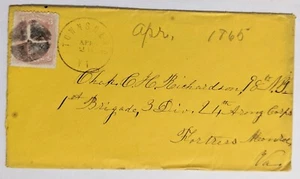 Apr. 1865
Chap. C. H. Richardson, 9th Vt
1st Brigade, 3 Div. 24th Army Corps
Fortress Monroe
Va